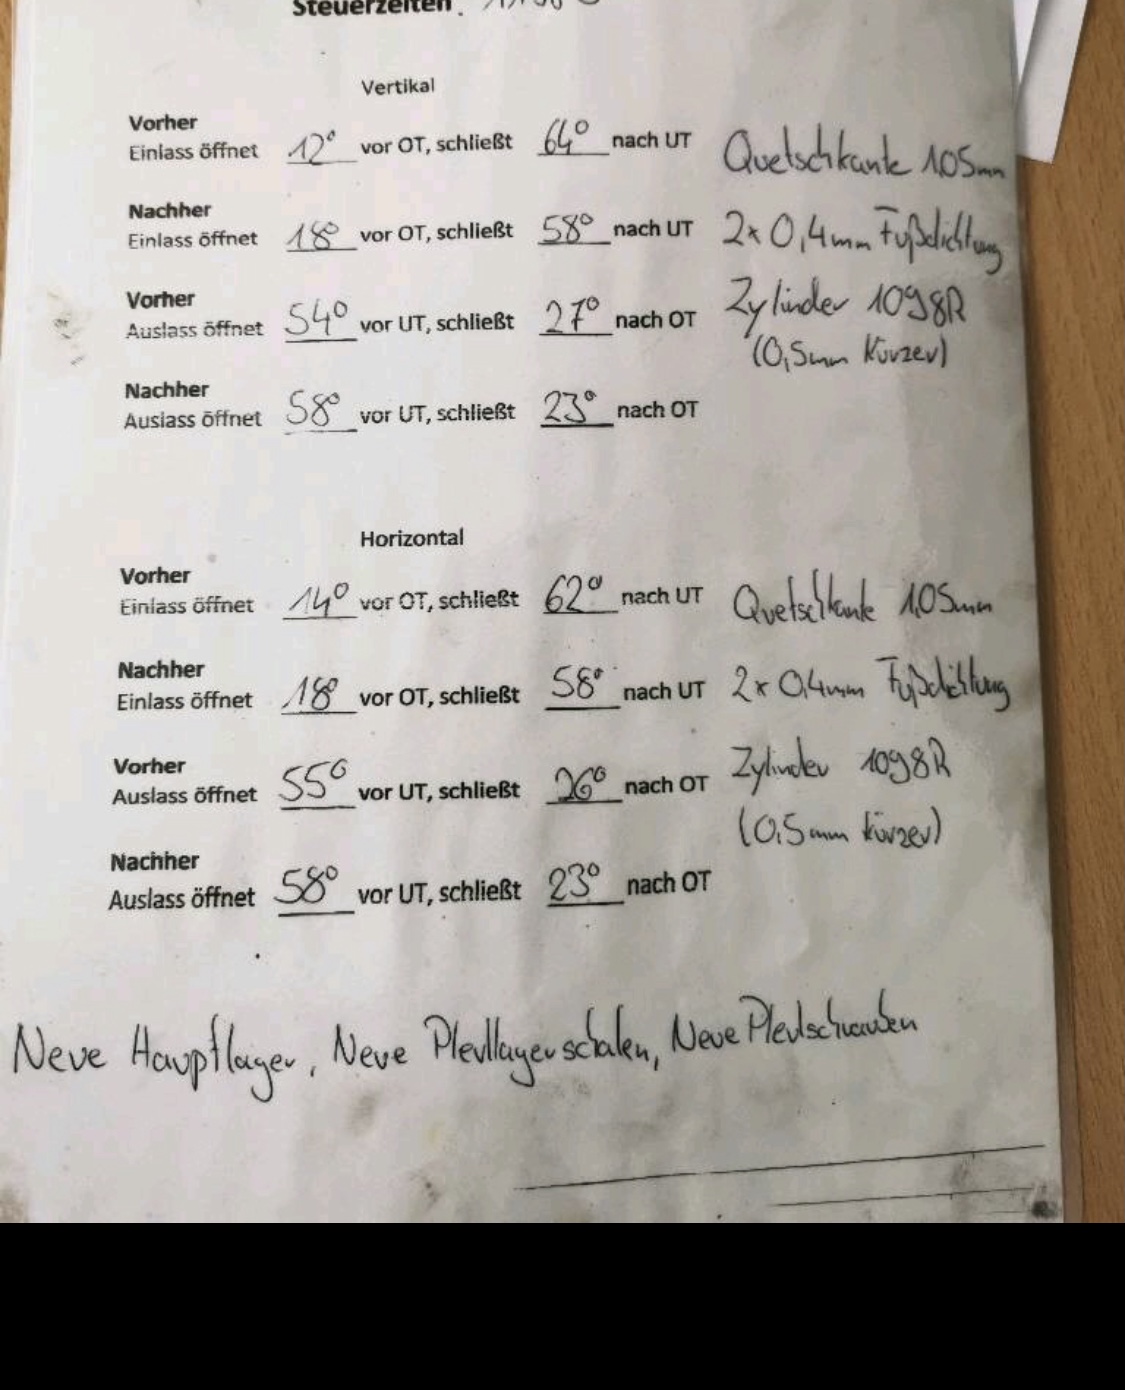 Steuerzeiten
Vertikal
Vorher
Einlass öffnet 12° vor OT, schließt 64° nach UT
Quetschkante 1,05mm
Nachher
Einlass öffnet 18° vor OT, schließt 58° nach UT
2x 0,4mm Fußdichtung
Vorher
Auslass öffnet 54° vor UT, schließt 27° nach OT
Zylinder 1098R
(0,5mm Kürzer)
Nachher
Auslass öffnet 58° vor UT, schließt 23° nach OT
Horizontal
Vorher
Einlass öffnet 14° vor OT, schließt 62° nach UT
Quetschkante 1,05mm
Nachher
Einlass öffnet 18° vor OT, schließt 58° nach UT
2x 0,4mm Fußdichtung
Vorher
Auslass öffnet 55° vor UT, schließt 26° nach OT
Zylinder 1098R
(0,5mm kürzer)
Nachher
Auslass öffnet 58° vor UT, schließt 23° nach OT
Neue Hauptlager, Neue Pleullagerschalen, Neue Pleulschrauben